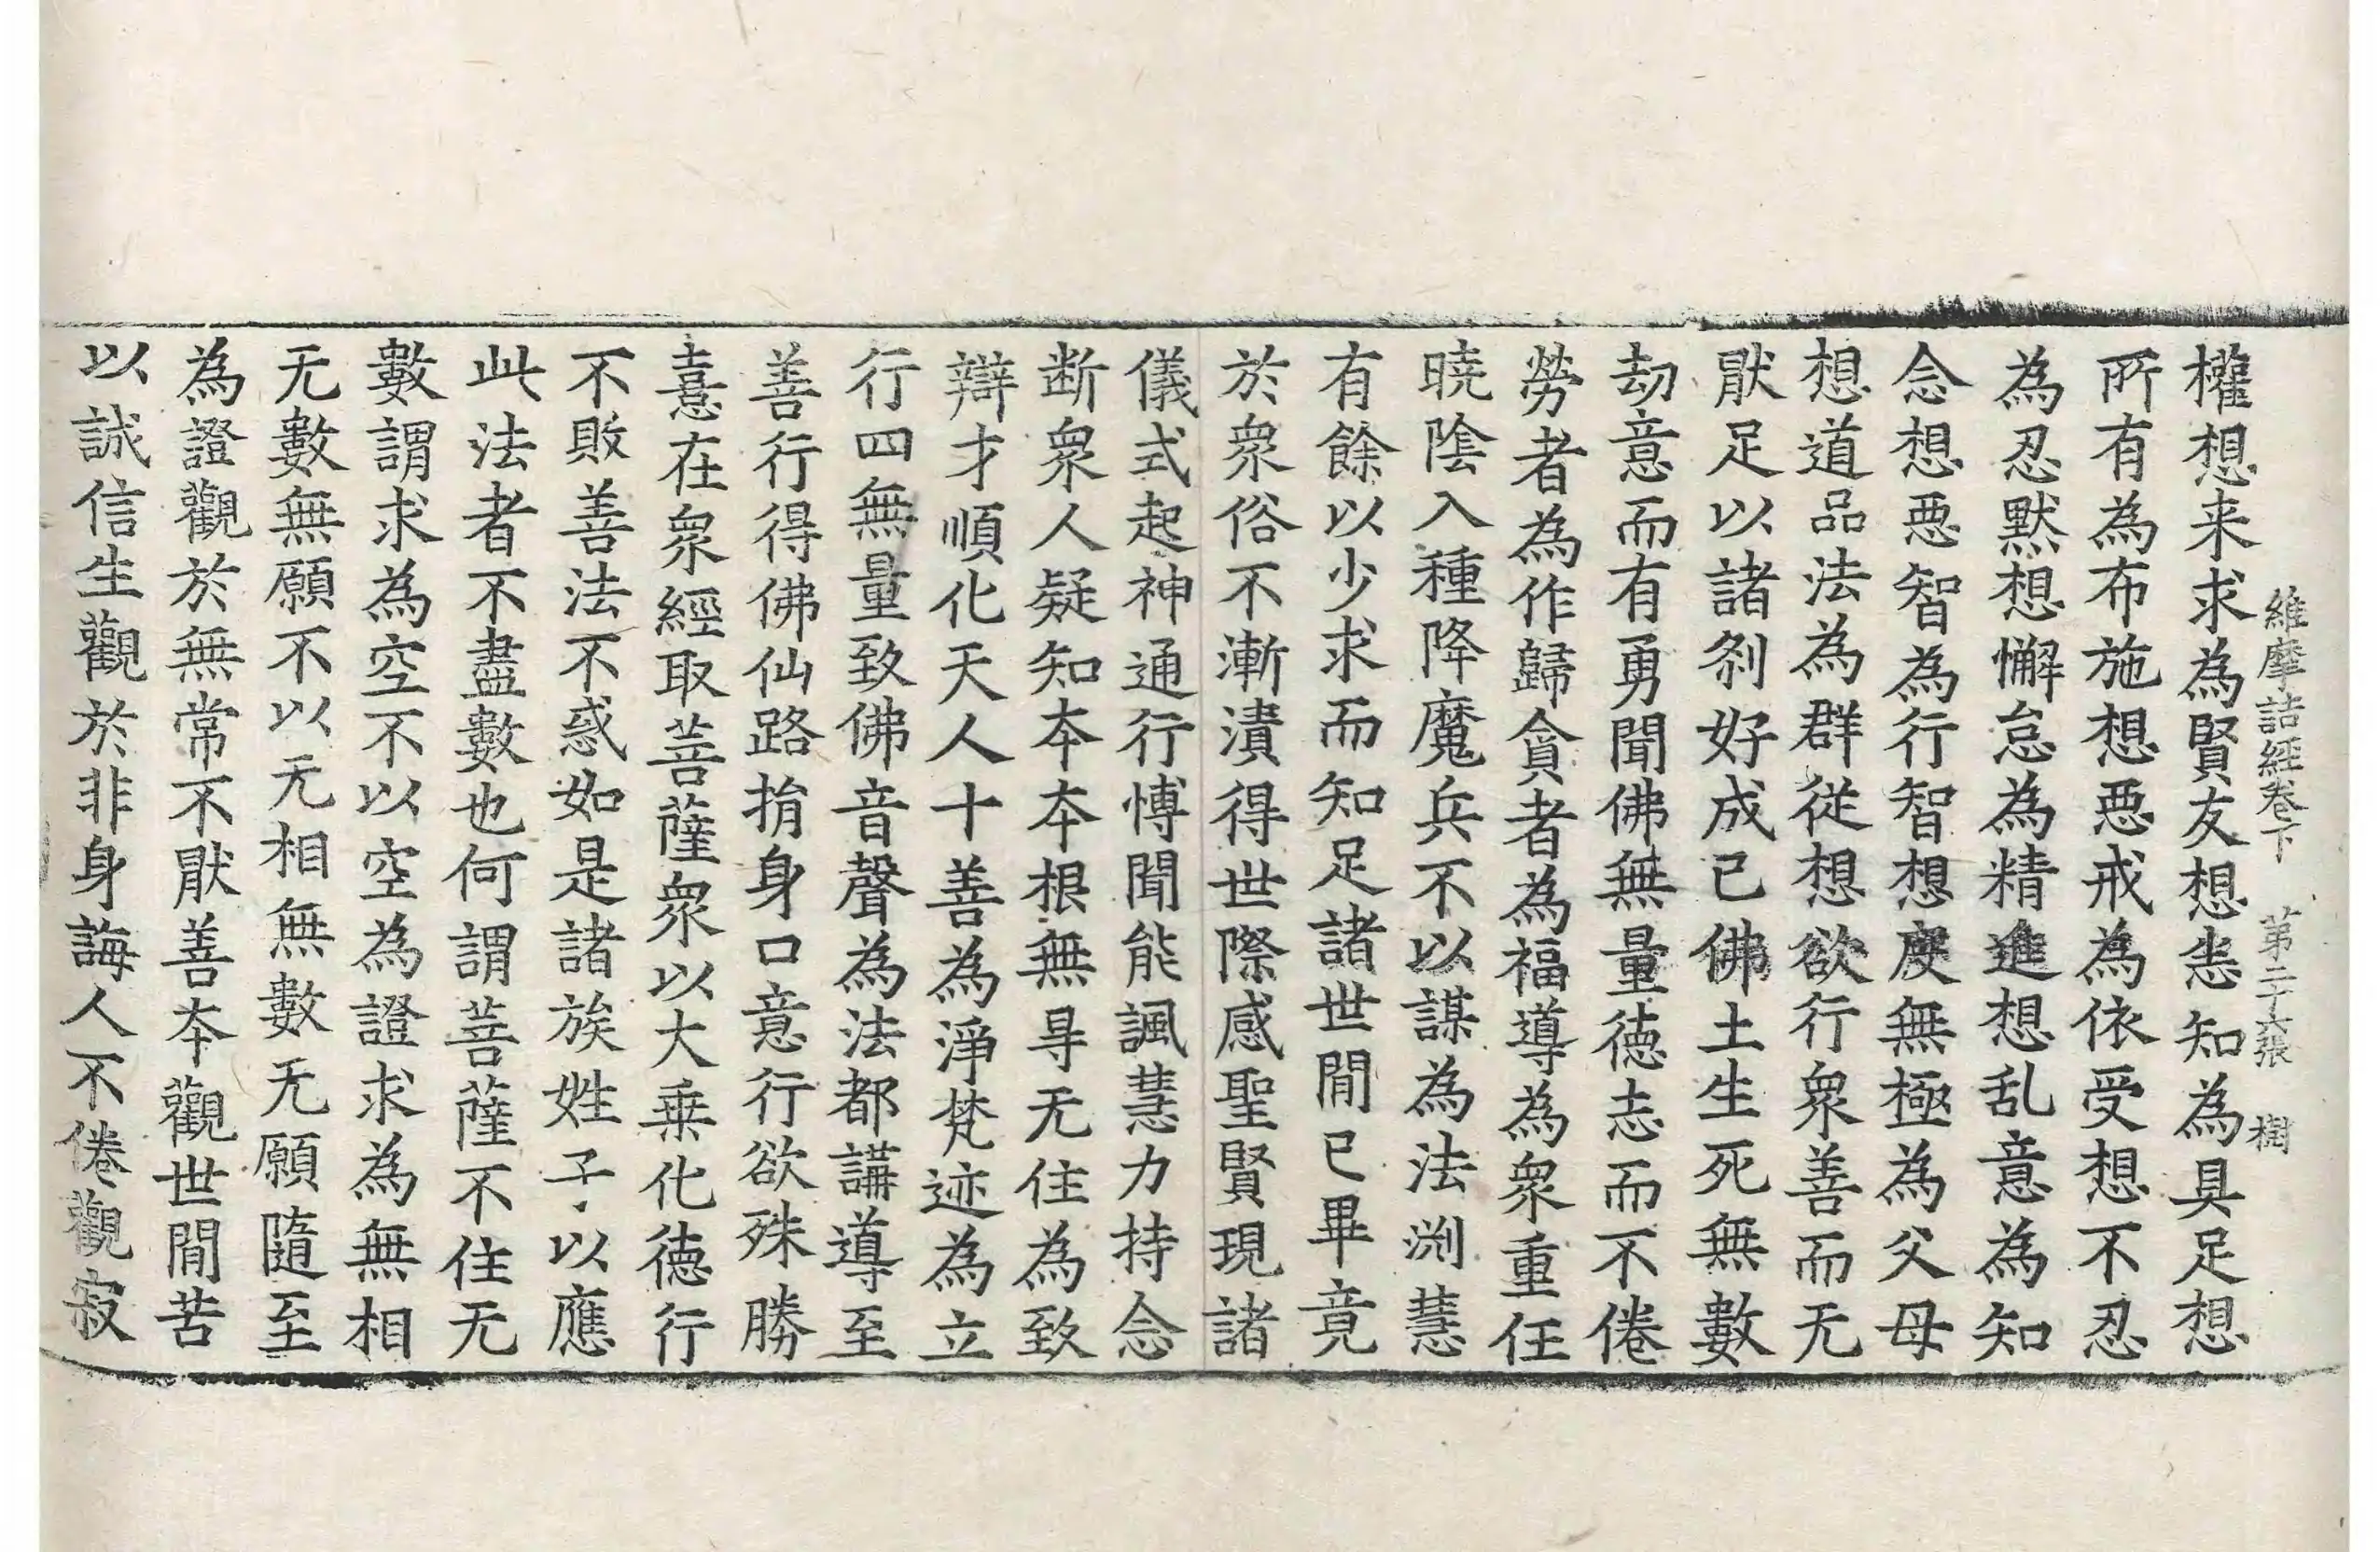 維摩詰經卷下 第二十六張 樹
權想来求為賢友想恚知為具足想
所有為布施想惡戒為依受想不忍
為忍默想懈怠為精進想乱意為知
念想惡智為行智想度無極為父母
想道品法為群從想欲行衆善而无
猒足以諸刹好成已佛土生死無數
劫意而有勇聞佛無量德志而不倦
勞者為作歸貪者為福導為衆重任
曉陰入種降魔兵不以謀為法淵慧
有餘以少求而知足諸世間已畢竟
於衆俗不漸漬得世際感聖賢現諸
儀式起神通行愽聞能諷慧力持念
断衆人疑知夲夲根無㝵无住為致
辯才順化天人十善為淨梵迹為立
行四無量致佛音聲為法都講導至
善行得佛仙路捐身口意行欲殊勝
憙在衆經取菩薩衆以大乗化德行
不敗善法不惑如是諸族姓子以應
此法者不盡數也何謂菩薩不住无
數謂求為空不以空為證求為無相
无數無願不以无相無數无願隨至
為證觀於無常不猒善夲觀世間苦
以誠信生觀於非身誨人不倦觀寂